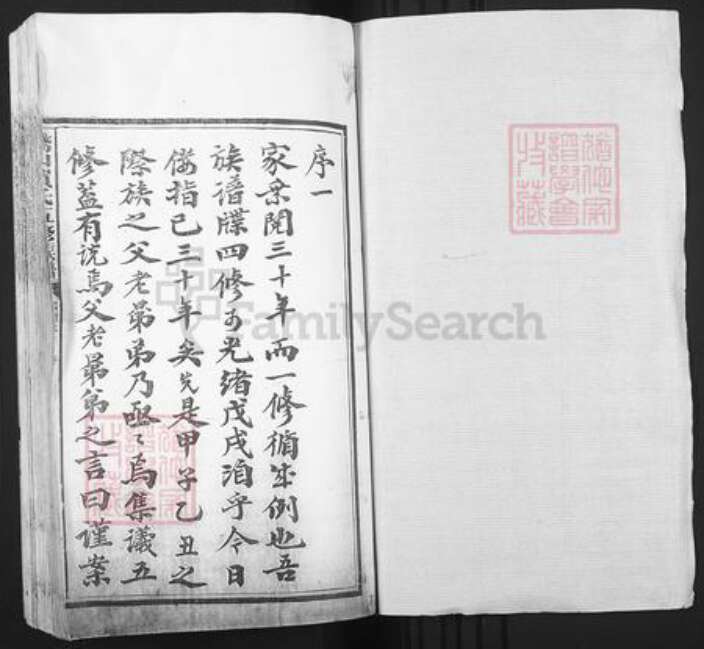 序一
家乘閱三十年而一修循成例也吾
族譜牒四修於光緒戊戌洎乎今日
僂指已三十年矣先是甲子乙丑之
際族之父老弟乃亟亟焉集議五
修蓋有說焉父老弟之言曰謹案
FamilySearch
譜學會
收藏